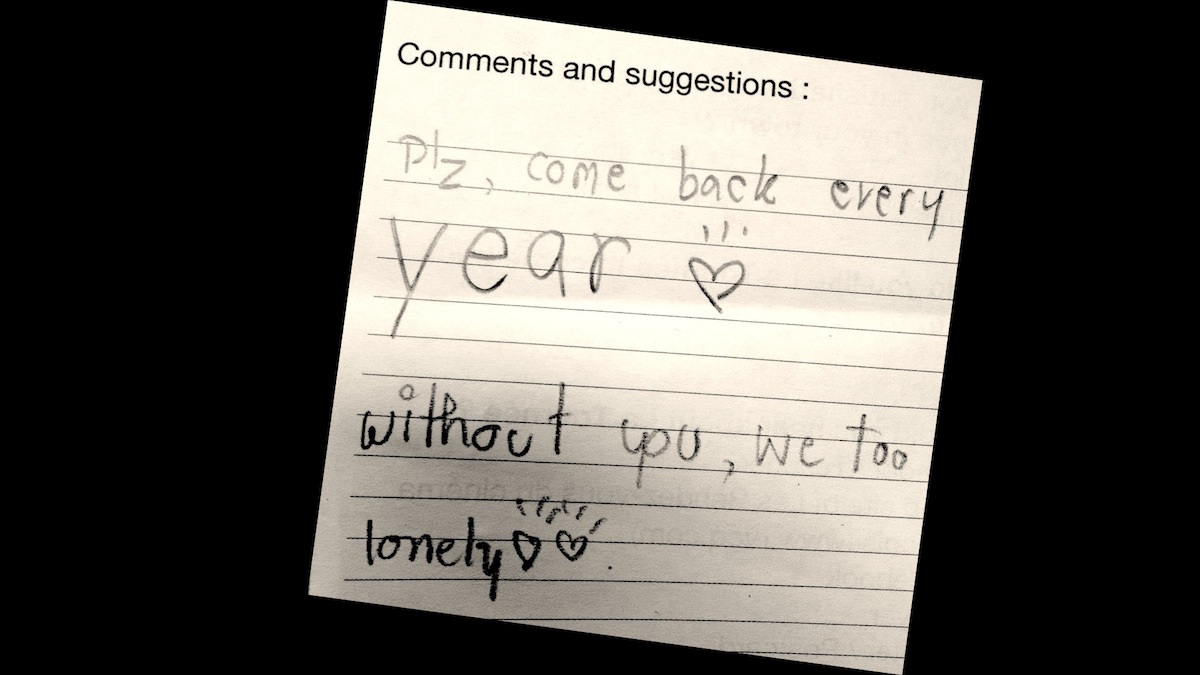 Comments and suggestions :
Plz, come back every
year ♡
without you, we too
lonely ♡ ♡ .